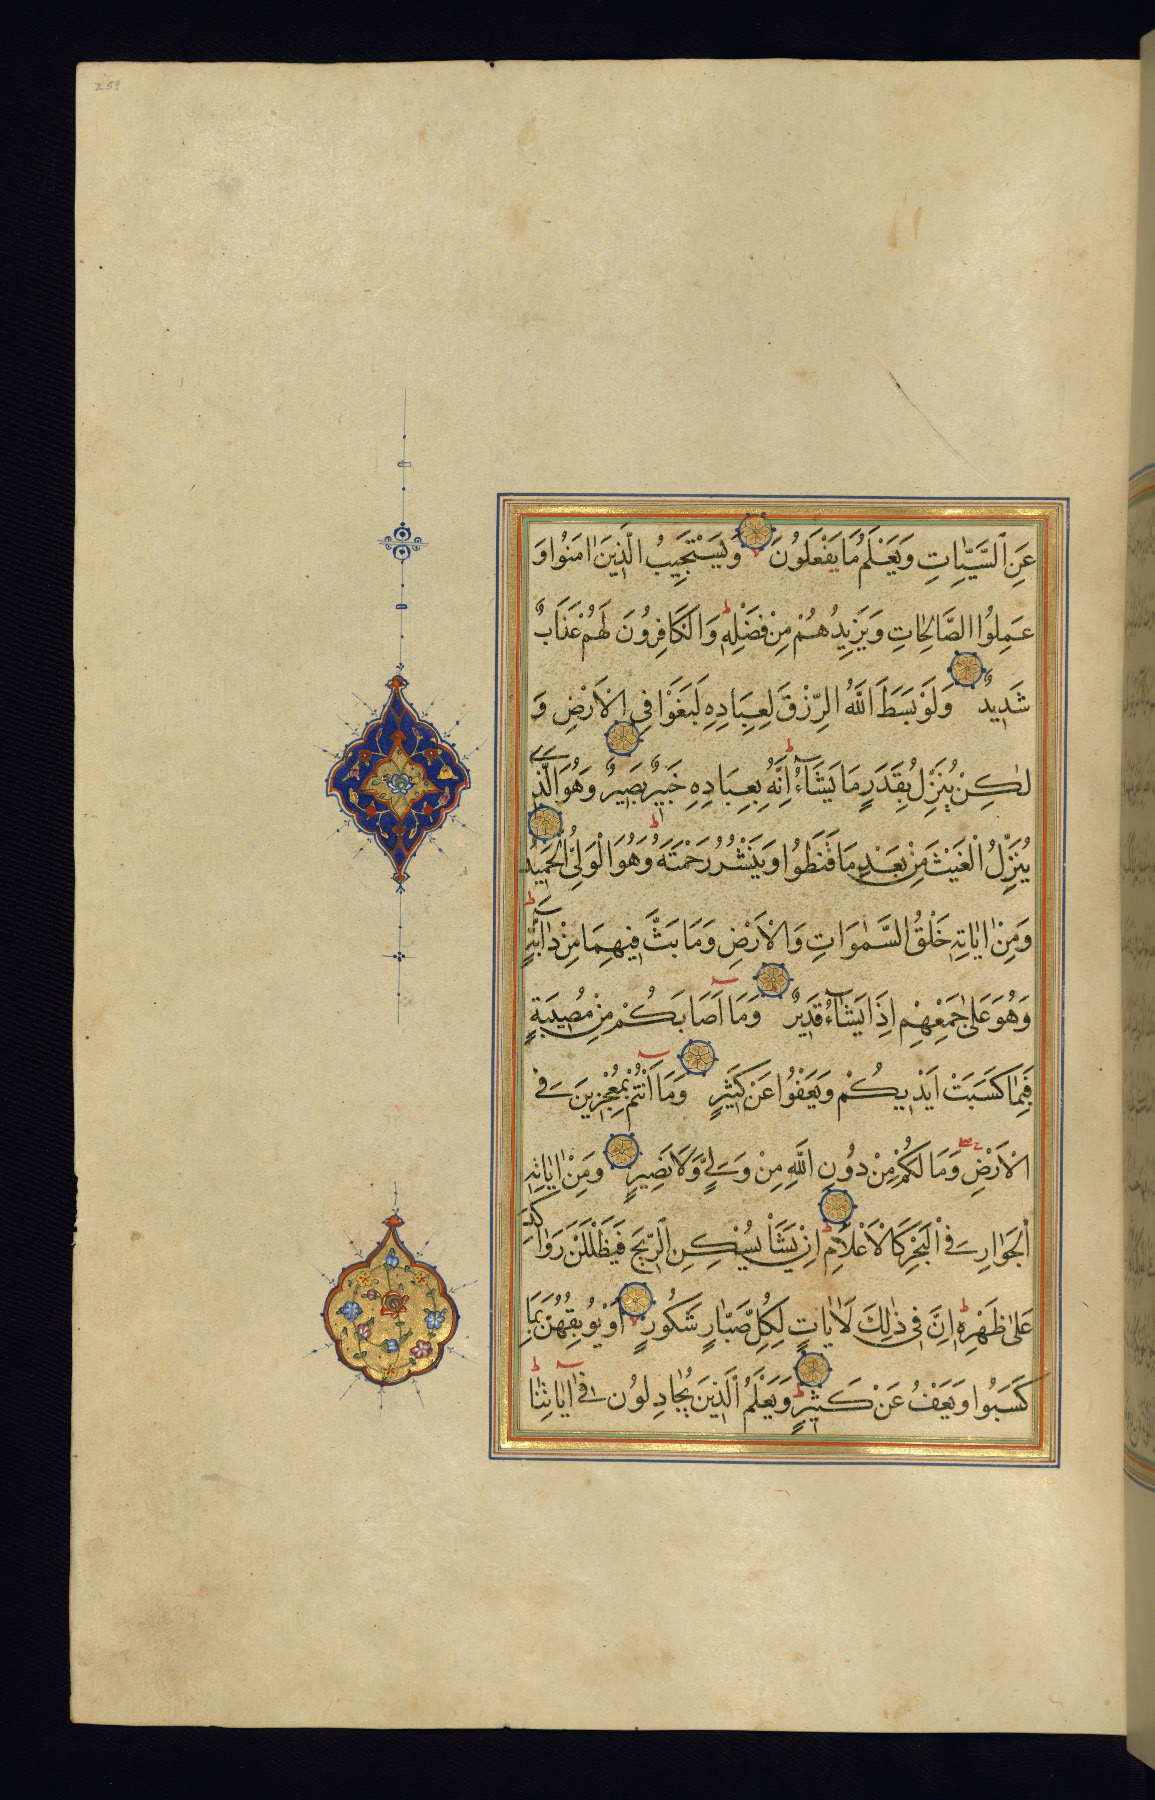 259
عَنِ السَّيِّاٰتِ وَيَعْلَمُ مَا يَفْعَلُونَ وَيَسْتَجِيبُ الَّذِينَ اٰمَنُوا وَ
عَمِلُوا الصَّالِحَاتِ وَيَزِيدُهُمْ مِنْ فَضْلِهٖ وَالْكَافِرُونَ لَهُمْ عَذَابٌ
شَدِيدٌ وَلَوْ بَسَطَ اللّٰهُ الرِّزْقَ لِعِبَادِهِ لَبَغَوْا فِي الْاَرْضِ وَ
لٰكِنْ يُنَزِّلُ بِقَدَرٍ مَا يَشَاۤءُ اِنَّهُ بِعِبَادِهِ خَبِيرٌ بَصِيرٌ وَهُوَ الَّذِي
يُنَزِّلُ الْغَيْثَ مِنْ بَعْدِ مَا قَنَطُوا وَيَنْشُرُ رَحْمَتَهُ وَهُوَ الْوَلِيُّ الْحَمِيدُ
وَمِنْ اٰيَاتِهٖ خَلْقُ السَّمٰوَاتِ وَالْاَرْضِ وَمَا بَثَّ فِيهِمَا مِنْ دَاۤبَّةٍ
وَهُوَ عَلٰى جَمْعِهِمْ اِذَا يَشَاۤءُ قَدِيرٌ وَمَاۤ اَصَابَكُمْ مِنْ مُصِيبَةٍ
فَبِمَا كَسَبَتْ اَيْدِيكُمْ وَيَعْفُوا عَنْ كَثِيرٍ وَمَاۤ اَنْتُمْ بِمُعْجِزِينَ فِي
الْاَرْضِ وَمَا لَكُمْ مِنْ دُونِ اللّٰهِ مِنْ وَلِيٍّ وَلَا نَصِيرٍ وَمِنْ اٰيَاتِهِ
الْجَوَارِ فِي الْبَحْرِ كَالْاَعْلَامِ اِنْ يَشَأْ يُسْكِنِ الرِّيحَ فَيَظْلَلْنَ رَوَاكِدَ
عَلٰى ظَهْرِهٖ اِنَّ فِي ذٰلِكَ لَاٰيَاتٍ لِكُلِّ صَبَّارٍ شَكُورٍ اَوْ يُوبِقْهُنَّ بِمَا
كَسَبُوا وَيَعْفُ عَنْ كَثِيرٍ وَيَعْلَمَ الَّذِينَ يُجَادِلُونَ فِىۤ اٰيَاتِنَا